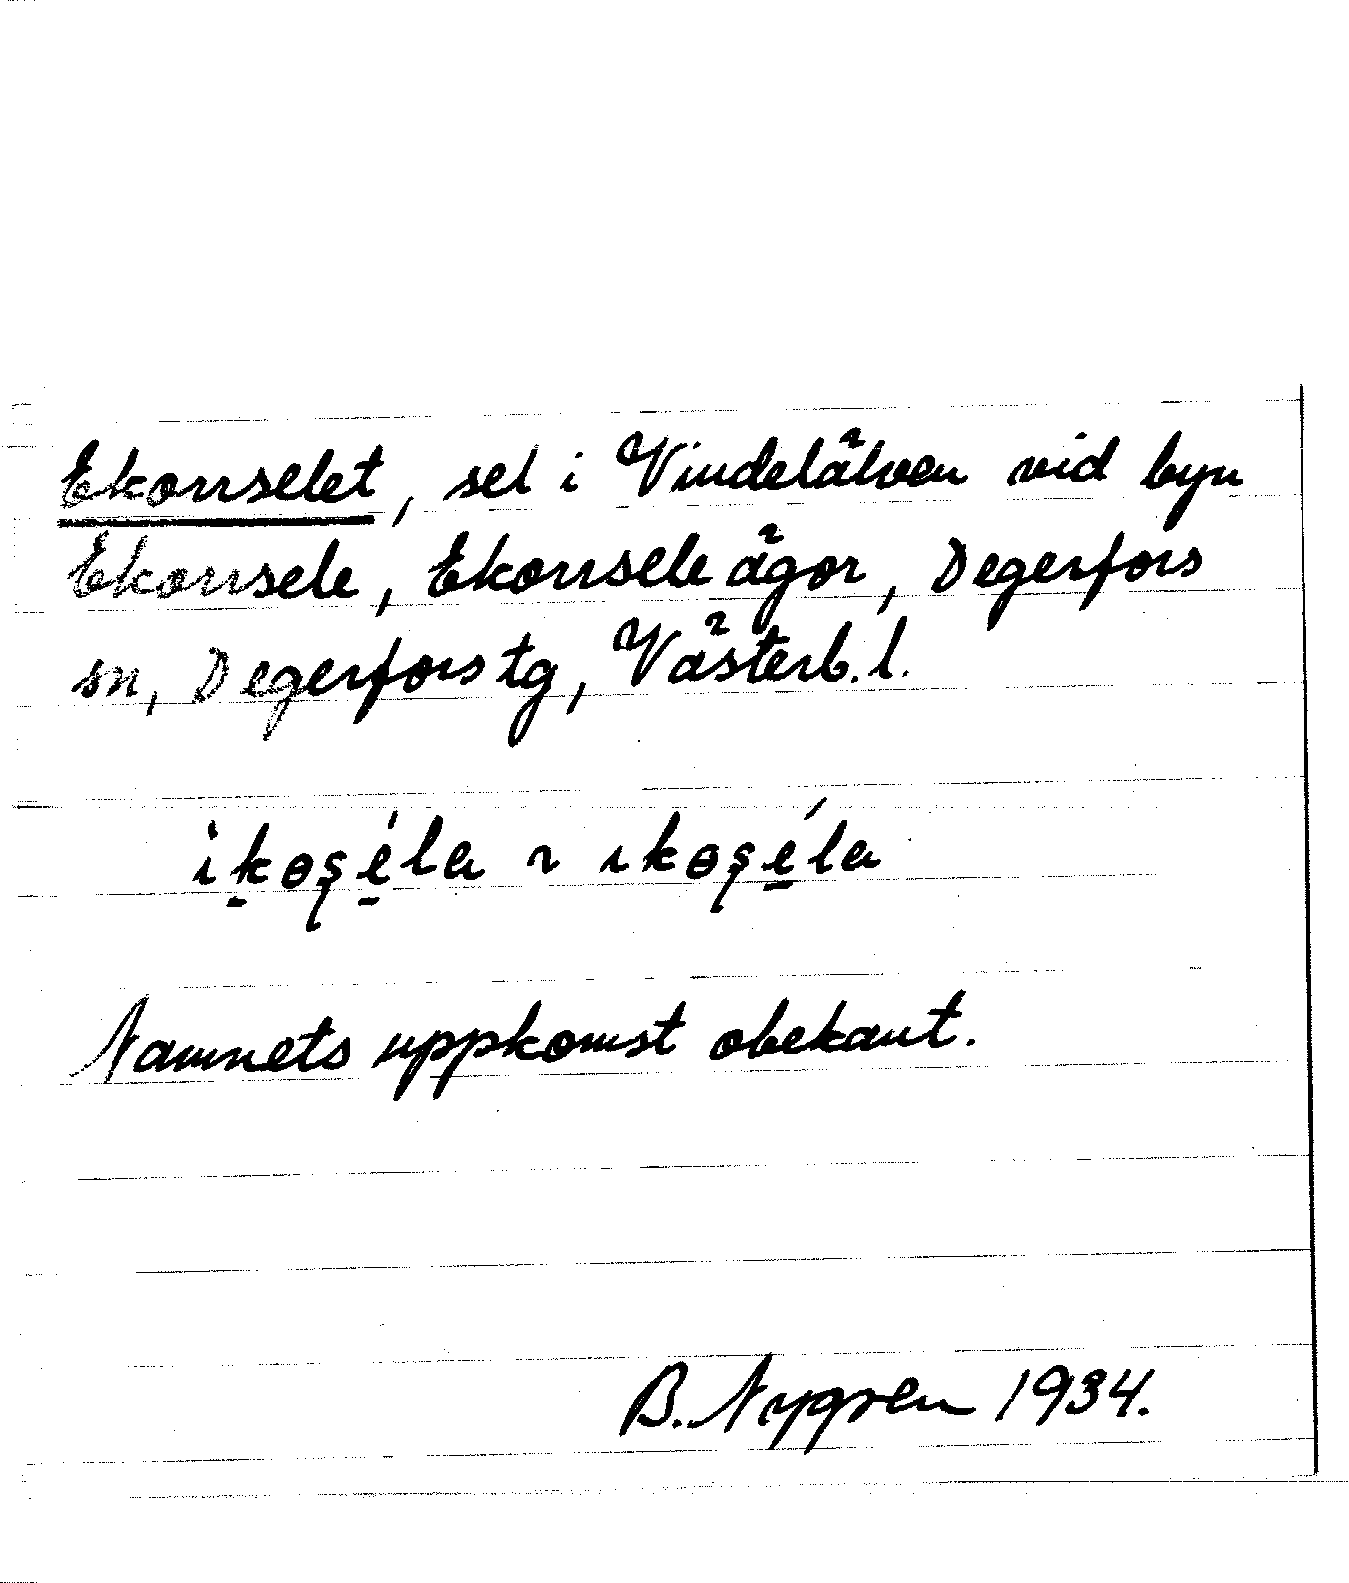 Ekorrselet, sel i Vindelälven vid byn
Ekorrsele, Ekorrsele ägor, Degerfors
sn, Degerfors tg, Västerb. l.
ik̠ɵʂé̠la ~ ıkɵʂé̠la
Namnets uppkomst obekant.
B. Nygren 1934.